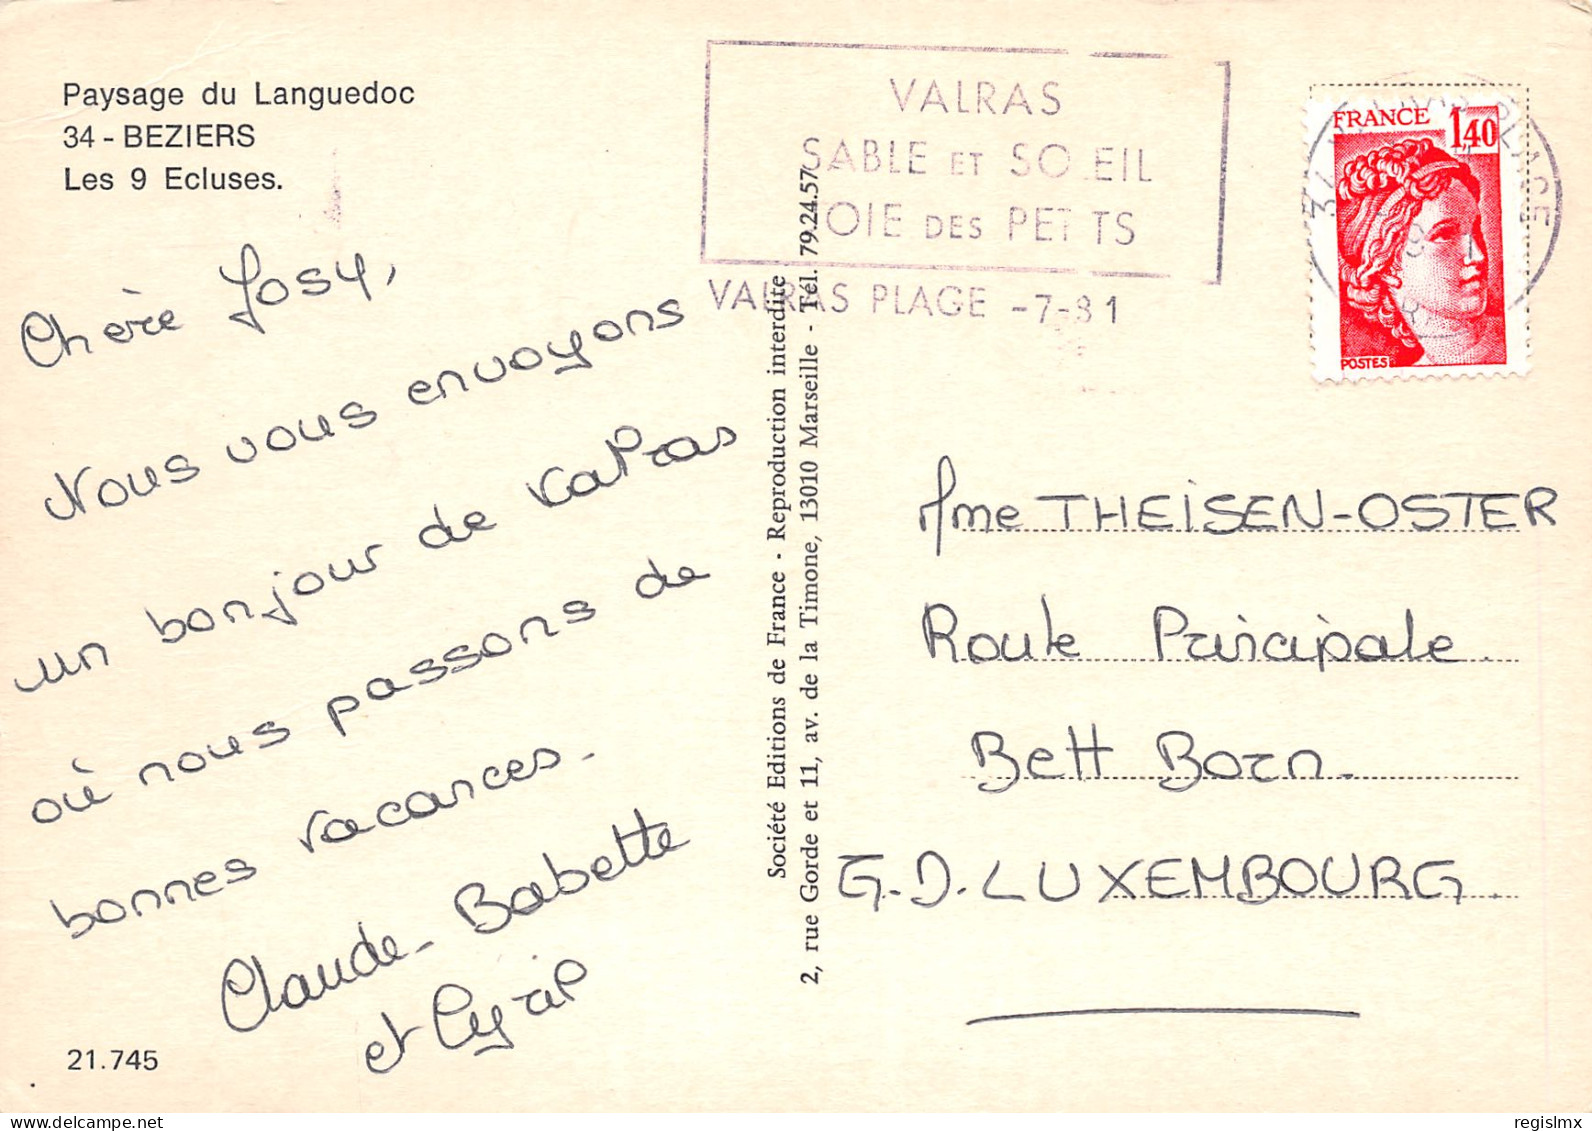 Paysage du Languedoc
34 - BEZIERS
Les 9 Ecluses.
VALRAS
SABLE ET SOLEIL
JOIE DES PETITS
VALRAS PLAGE -7-81
FRANCE 1,40
POSTES
Chère Josy,
Nous vous envoyons
un bonjour de Valras
où nous passons de
bonnes vacances.
Claude - Babette
et Cyril
21.745
Société Editions de France - Reproduction interdite
2, rue Gorde et 11, av. de la Timone, 13010 Marseille - Tél. 79.24.57
Mme THEISEN-OSTER
Route Principale
Bett Born.
G.D. LUXEMBOURG.
regislmx